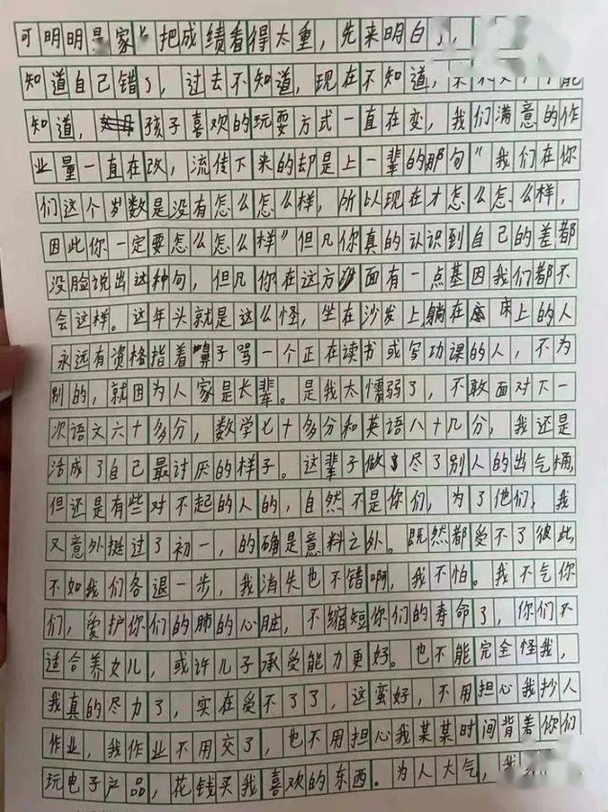 可明明是家长把成绩看得太重，先来明白了，
知道自己错了，过去不知道，现在不知道，
知道，孩子喜欢的玩耍方式一直在变，我们满意的作
业量一直在改，流传下来的却是上一辈的那句"我们在你
们这个岁数是没有怎么怎么样，所以现在才怎么怎么样，
因此你一定要怎么怎么样"但凡你真的认识到自己的差都
没脸说出这种句，但凡你在这方面有一点基因我们都不
会这样。这年头就是这么怪，坐在沙发上躺在床上的人
永远有资格指着鼻子骂一个正在读书或写功课的人，不为
别的，就因为人家是长辈。是我太懦弱了，不敢面对下一
次语文六十多分，数学七十多分和英语八十几分，我还是
活成了自己最讨厌的样子。这辈子做尽了别人的出气桶，
但还是有些对不起的人的，自然不是你们，为了他们，我
又意外挺过了初一，的确是意料之外。既然都受不了彼此，
不如我们各退一步，我消失也不错啊，我不怕。我不气你
们，爱护你们的肺的心脏，不缩短你们的寿命了，你们不
适合养女儿，或许儿子承受能力更好。也不能完全怪我，
我真的尽力了，实在受不了了，这蛮好，不用担心我抄人
作业，我作业不用交了，也不用担心我某某时间背着你们
玩电子产品，花钱买我喜欢的东西。为人大气，我